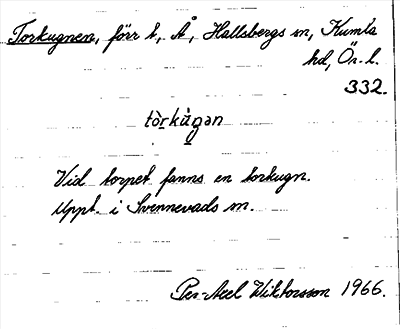 Torkugnen, förr t, Å, Hallsbergs sn, Kumla
hd, Ör. l.
332.
tòrkù̱gan
Vid torpet fanns en torkugn.
Uppt. i Svennevads sn.
Per Axel Wiktorsson 1966.